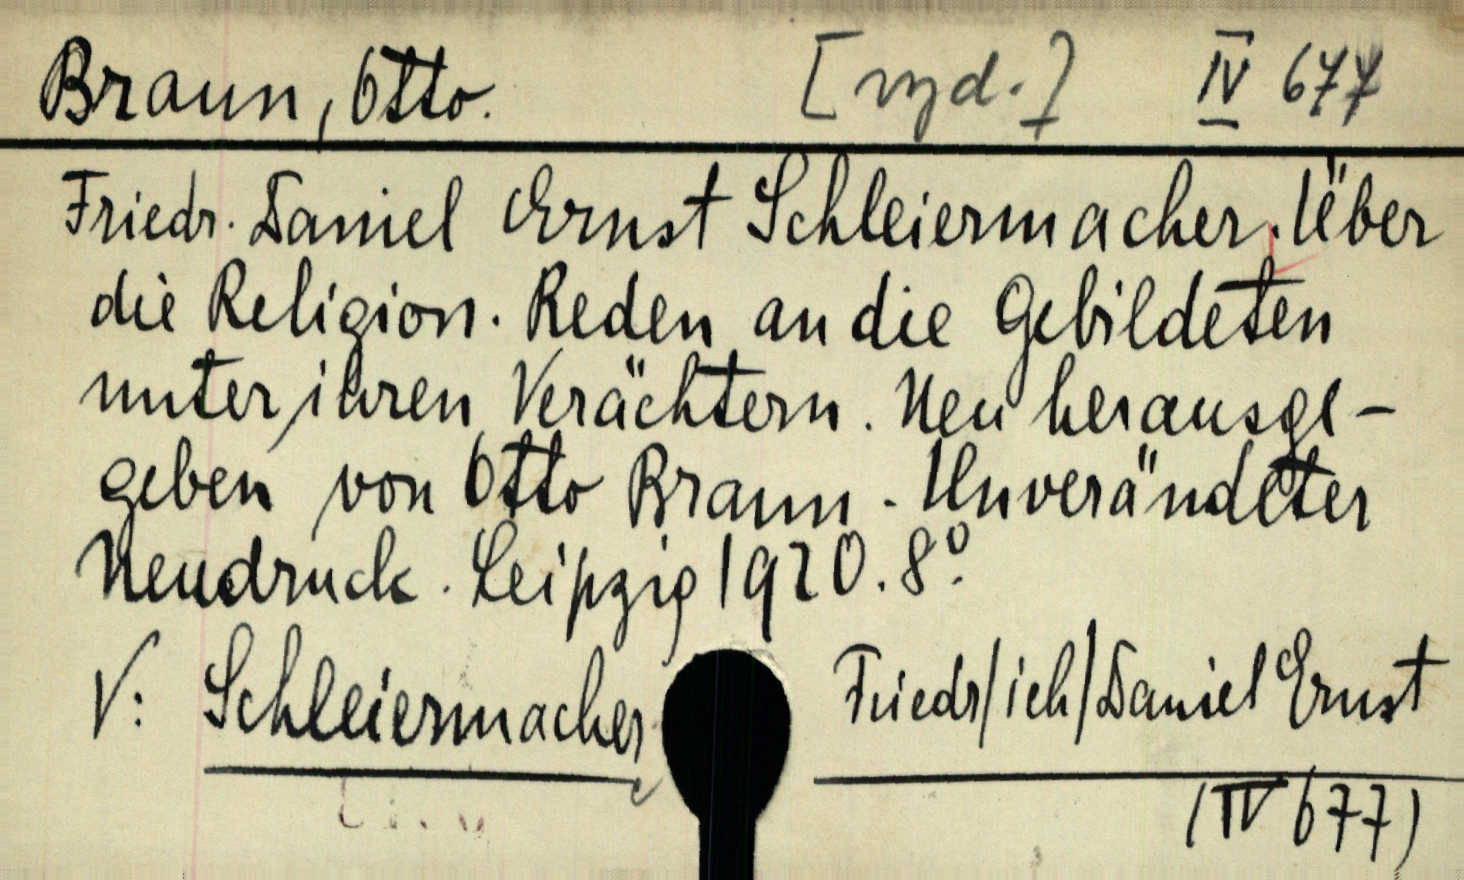 Braun, Otto. [vyd.] IV 677
Friedr. Daniel Ernst Schleiermacher. Über
die Religion. Reden an die Gebildeten
unter ihren Verächtern. Neu herausge-
geben von Otto Braun. Unverändeter
Neudruck. Leipzig 1920. 8°.
V: Schleiermacher, Friedr/ich/Daniel Ernst
(IV 677)